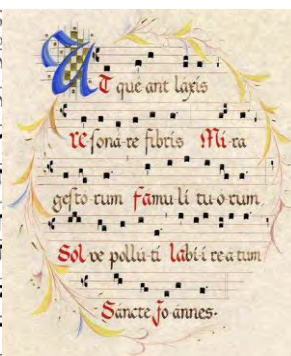 UT que ant láxis
re soná-re fibris Mi-ra
gestó-rum fa mu-li tu-o-rum
Sol ve pollú-ti labi-i re-a tum
Sancte Jo annes.